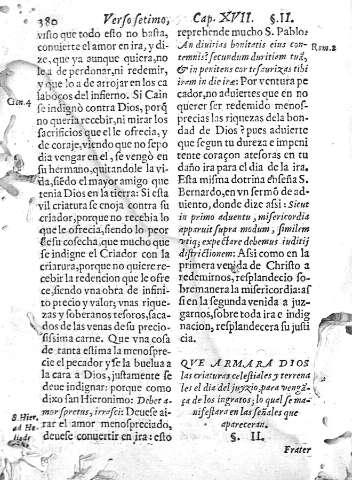 380 Verso setimo, Cap. XVII. §. II.
visto que todo esto no basta,
conuierte el amor en ira, y di-
ze, que ya aunque quiera, no
le a de perdonar, ni redemir,
y que lo a de arrojar en los ca
laboços del infierno. Si Cain
Gen. 4
se indignò contra Dios, porq̃
no queria recebir, ni mirar los
sacrificios que el le ofrecia, y
de coraje, viendo que no se po
dia vengar en el, se vengò en
su hermano, quitandole la vi-
da, siẽdo el mayor amigo que
tenia Dios en la tierra: Si esta
vil criatura se enoja contra su
Criador, porque no recebia lo
que le ofrecia, siendo lo peor
de su cosecha, que mucho que
se indigne el Criador con la
criatura, porque no quiere re-
cebir la redencion que le ofre
ce, siendo vna obra de infini-
to precio y valor; vnas rique-
zas y soberanos tesoros, saca-
dos de las venas de su precio-
sissima carne. Que vna cosa
de tanta estima la menospre-
cie el pecador y se la buelua a
la cara a Dios, justamente se
deue indignar: porque como
dixo san Hieronimo: Debet a-
S. Hier.
ad He-
mor spretus, irrasci: Deuese ai-
rar el amor menospreciado,
deuese conuertir en ira: esto
reprehende mucho S. Pablo:
An diuitias bonitatis eius con-
Rom. 2
temnis? secundum duritiam tuã,
& in penitens cor tesaurizas tibi
iram in die iræ: Por ventura pe
cador, no aduiertes que en no
querer ser redemido menos-
precias las riquezas dela bon-
dad de Dios? pues aduierte
que segun tu dureza e impeni
tente coraçon atesoras en tu
daño ira para el dia de la ira.
Esta misma dotrina ẽnseña S.
Bernardo, en vn sermõ de ad-
uiento, donde dize assi: Sicut
in primo aduentu, misericordia
apparuit supra modum, similem
vtiq; expectare debemus iuditij
districtionem: Assi como en la
primera venida de Christo a
redemirnos, resplandecio so-
bremanera la misericordia: as
si en la segunda venida a juz-
garnos, sobre toda ira e indig
nacion, resplandecera su justi
cia.
QVE ARMARA DIOS
las criaturas celestiales y terrena
les el dia del juyzio, para vengã-
ça de los ingratos, lo qual se ma-
nifestara en las señales que
apareceran.
§. II.
Frater